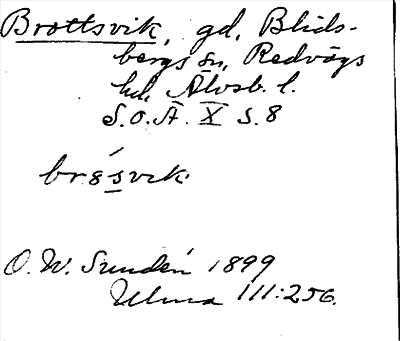 Brottsvik, gd, Blids-
bergs sn, Redvägs
hd, Älvsb. l.
S.O.Ä. X s. 8
br8́svik.
O. W. Sundén 1899
Ulma 111:256.